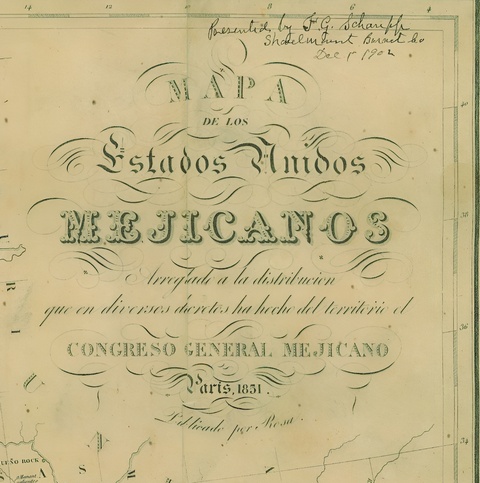 14 12 8 6 4
Presented by F. G. Schaupp
Dec 5 1902
MAPA
DE LOS
Estados Unidos
MEJICANOS
Arreglado a la distribucion
que en diversos decretos ha hecho del territorio el
CONGRESO GENERAL MEJICANO
Paris, 1831.
Publicado por Rosa.
40
38
36
34
R
I
U
S
A S H
LEÑO ROCK